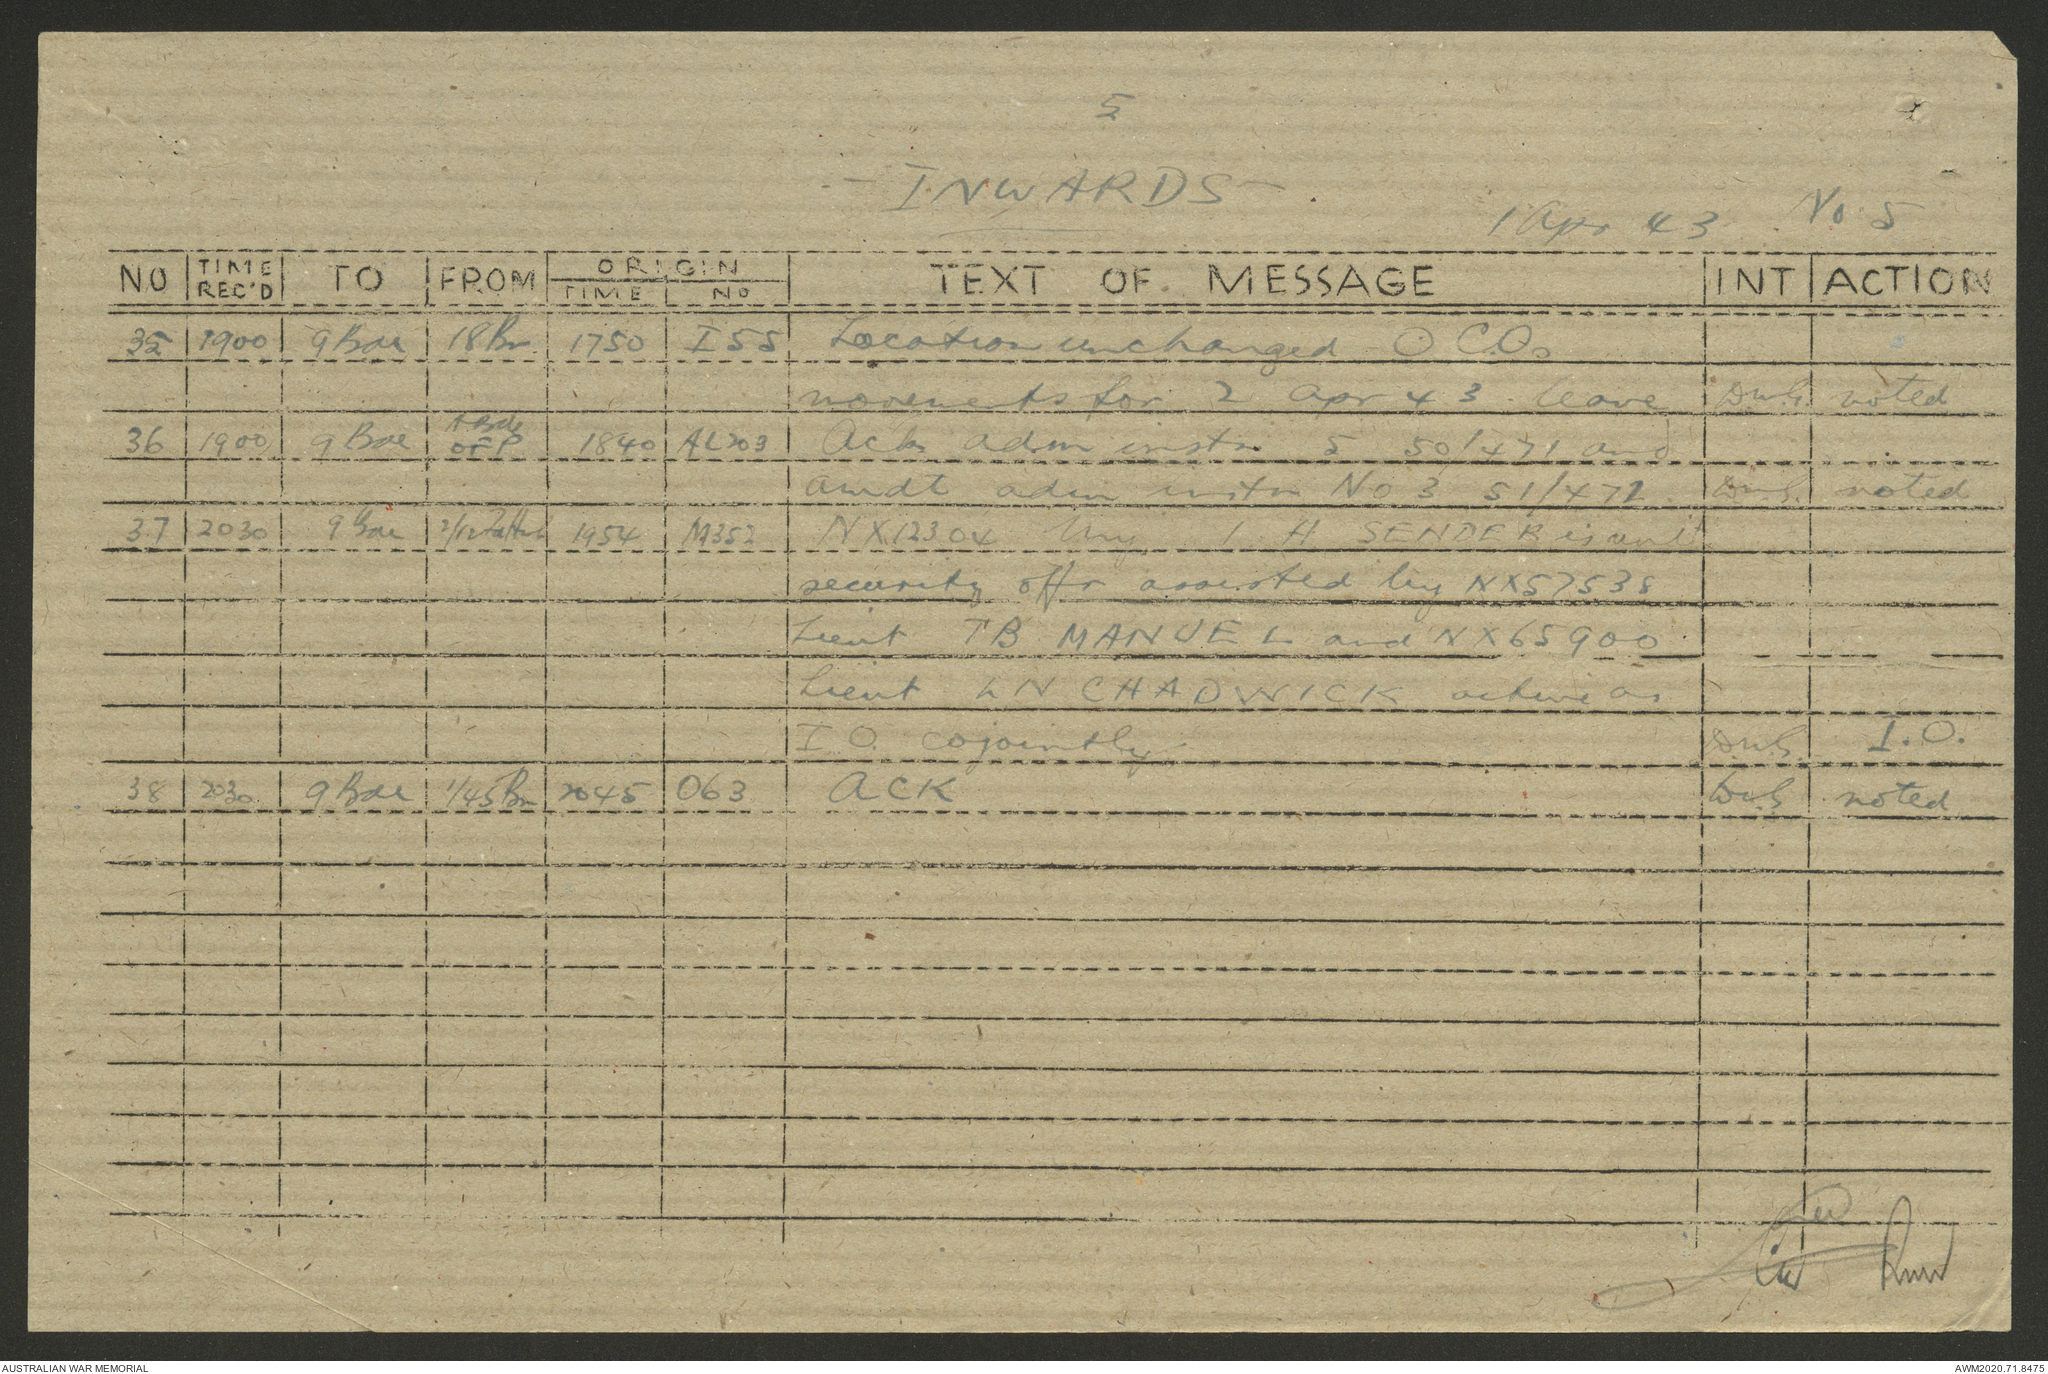 5
- INWARDS -
1 Apr 43 No 5
NO TIME REC'D TO FROM ORIGIN TIME NO TEXT OF MESSAGE INT ACTION
35 1900 9 Bde 18 Bn 1750 I55 Location unchanged O C.Os
movements for 2 Apr 43 leave DWS. noted
36 1900 9 Bde 1840 AL203 Ack adm instn 5 50/471 and
amdt adm instn No 3 51/472 DWS. noted
37 2030 9 Bde 1954 M352 NX12304 H SENDER is unit
security offr assisted by NX57538
Lieut TB MANUEL and NX65900
Lieut LN CHADWICK acting as
I O. cojointly. DWS. I.O.
38 2030 9 Bde 1/45 Bn 2045 063 ACK DWS noted
AUSTRALIAN WAR MEMORIAL
AWM2020.71.8475